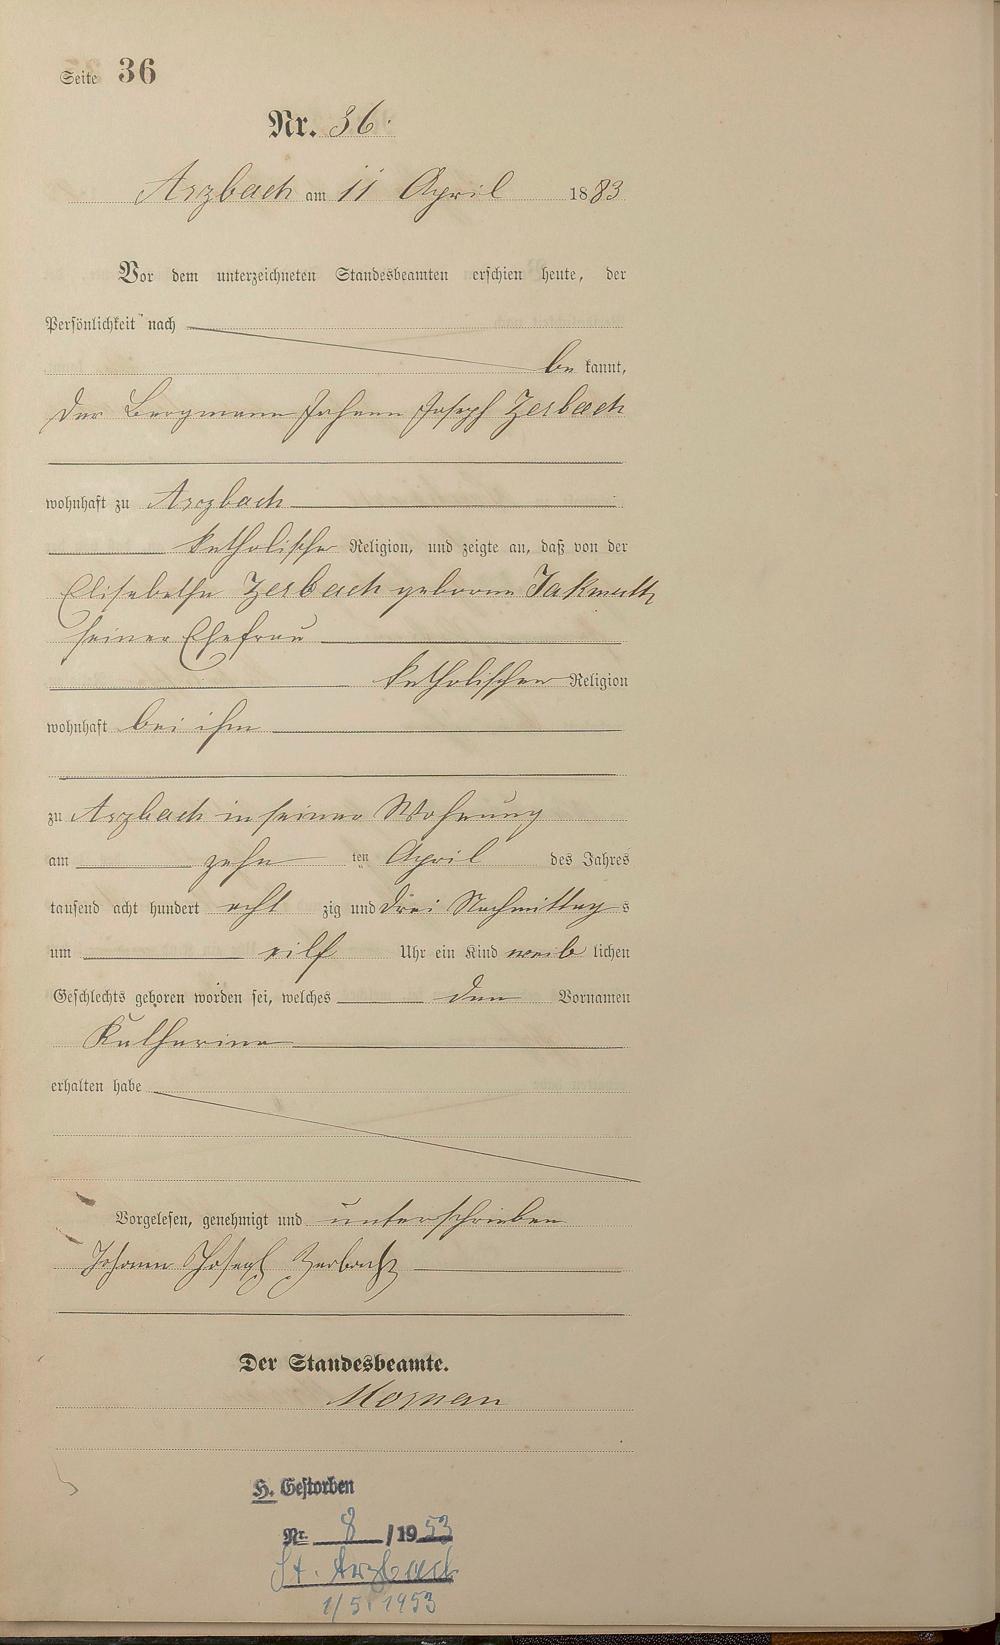 Seite 36
Nr. 36.
Arzbach am 11 April 1883
Vor dem unterzeichneten Standesbeamten erschien heute, der
Persönlichkeit nach
be kannt,
der Bergmann Johann Joseph Zerbach
wohnhaft zu Arzbach
katholischer Religion, und zeigte an, daß von der
Elisabetha Zerbach geborne Jakmuth
seiner Ehefrau
katholischen Religion
wohnhaft bei ihm
zu Arzbach in seiner Wohnung
am zehn ten April des Jahres
tausend acht hundert acht zig und drei Nachmittag s
um eilf Uhr ein Kind weib lichen
Geschlechts geboren worden sei, welches den Vornamen
Katharina
erhalten habe
Vorgelesen, genehmigt und unterschrieben
Johann Joseph Zerbach
Der Standesbeamte.
H. Gestorben
Nr. 8 /1953
St. Arzbach
1/5. 1953